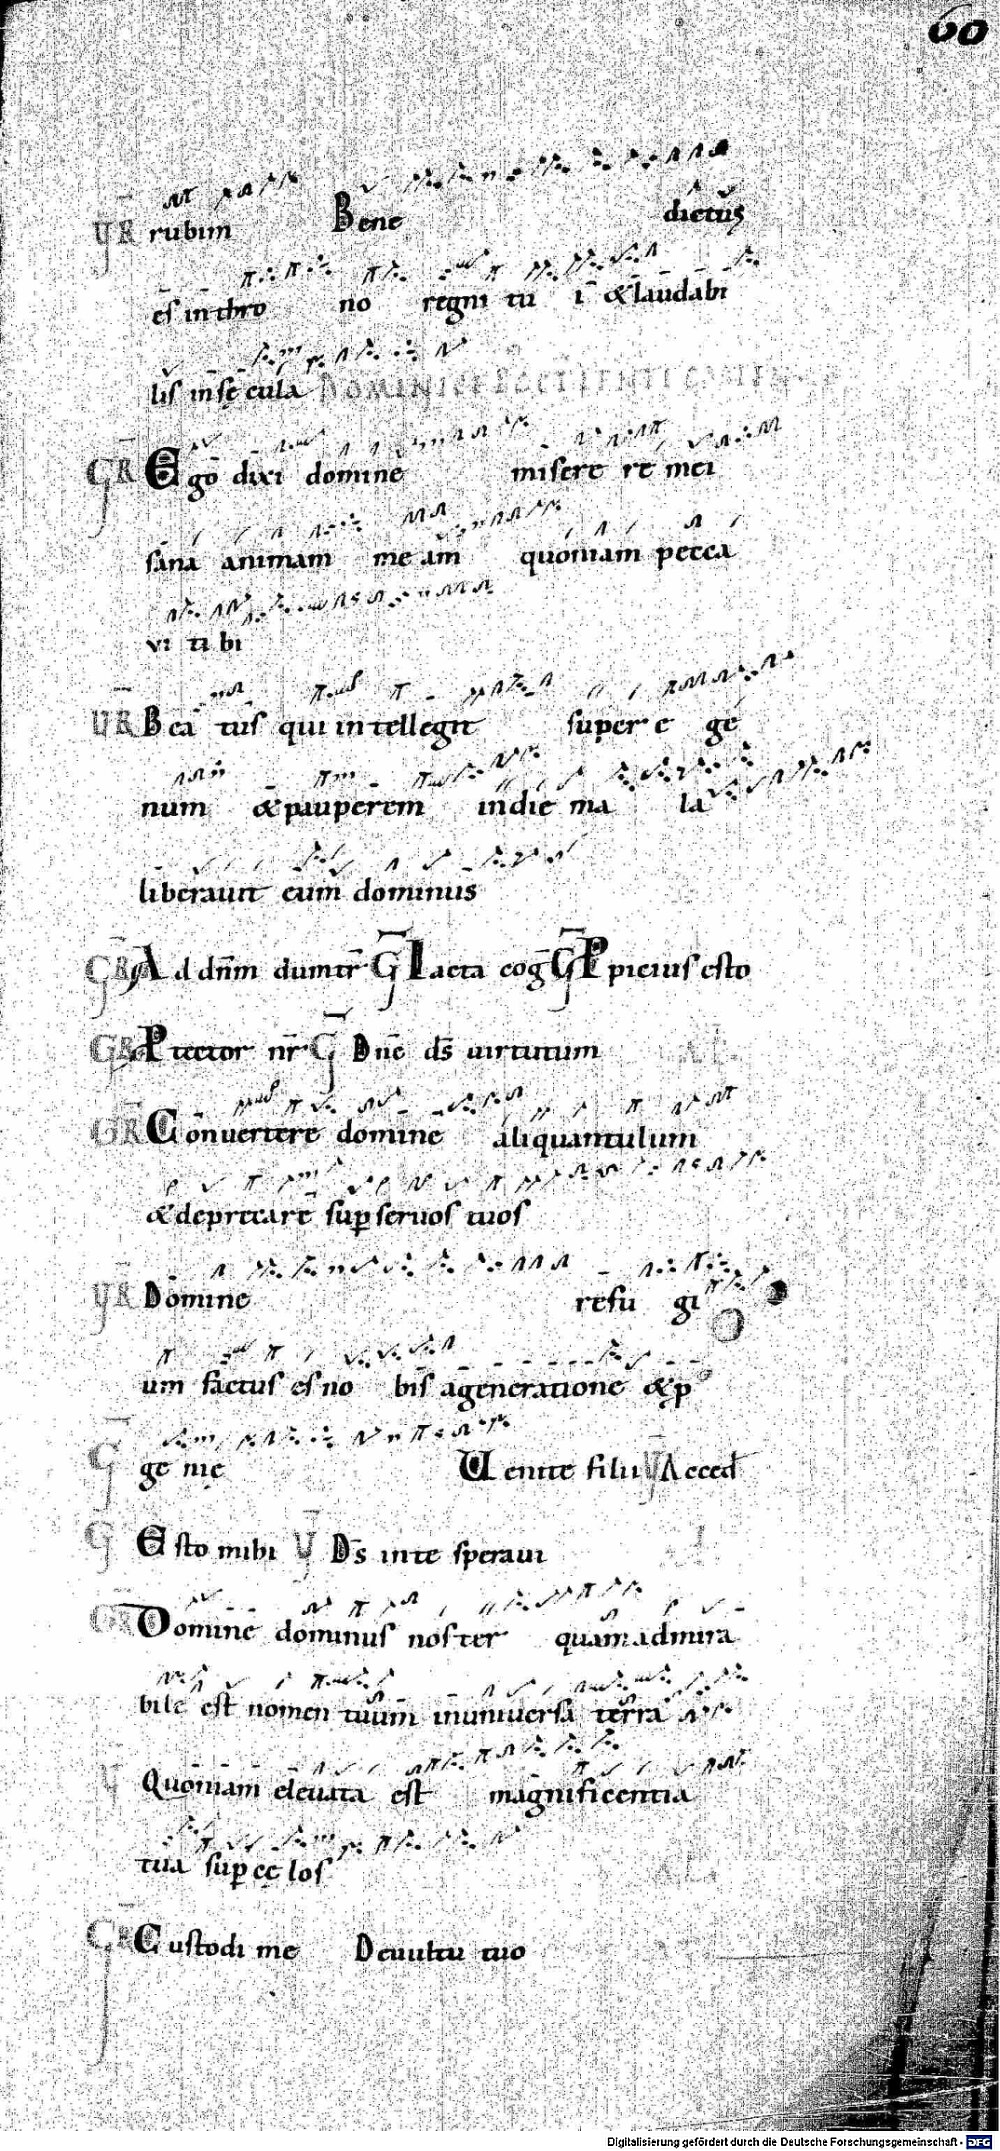 60
VR rubim Bene dictus
es in thro no regni tu i & laudabi
lis in secula
GR Ego dixi domine misere re mei
sana animam me am quoniam pecca
vi ti bi
VR Bea tus qui intellegit super e ge
num & pauperem in die ma la
liberauit eum dominus
GR Ad dn̄m dum tr̄ G Iacta coḡ G Ppicius esto
GR Ptector nr̄ G Dn̄e ds̄ uirtutum
GR Conuertere domine aliquantulum
& deprecare sup seruos tuos
VR Domine refu gi
um factus es no bis a generatione & p
G ge nie Uenite filii V Acced
G Esto mihi V Ds̄ in te speraui
GR Domine dominus noster quam admira
bile est nomen tuum in uniuersa terra
V Quoniam eleuata est magnificentia
tua sup cę los
GR Custodi me De uultu tuo
Digitalisierung gefördert durch die Deutsche Forschungsgemeinschaft - DFG